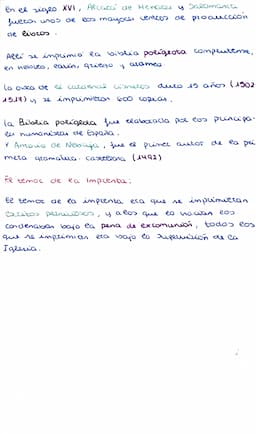 En el siglo XVI, Alcalá de Henares y Salamanca
fueron unos de los mayores centros de producción
de libros.
Allí se imprimió la biblia políglota complutense,
en hebreo, latín, griego y arameo
La obra de el cardenal Cisneros duró 15 años (1502
1517) y se imprimieron 600 copias.
La Biblia políglota fue elaborada por los principa-
les humanistas de España.
Y Antonio de Nebrija, fue el primer autor de la pri
mera gramática castellana (1492)
El temor de la Imprenta:
El temor de la imprenta era que se imprimieran
escritos peligrosos, y a los que lo hacían los
condenaban bajo la pena de excomunión, todos los
que se imprimían era bajo la supervisión de la
Iglesia.